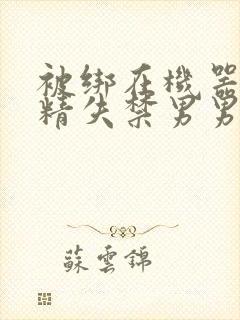 被绑在機器
精失禁男男
蘇雲錦